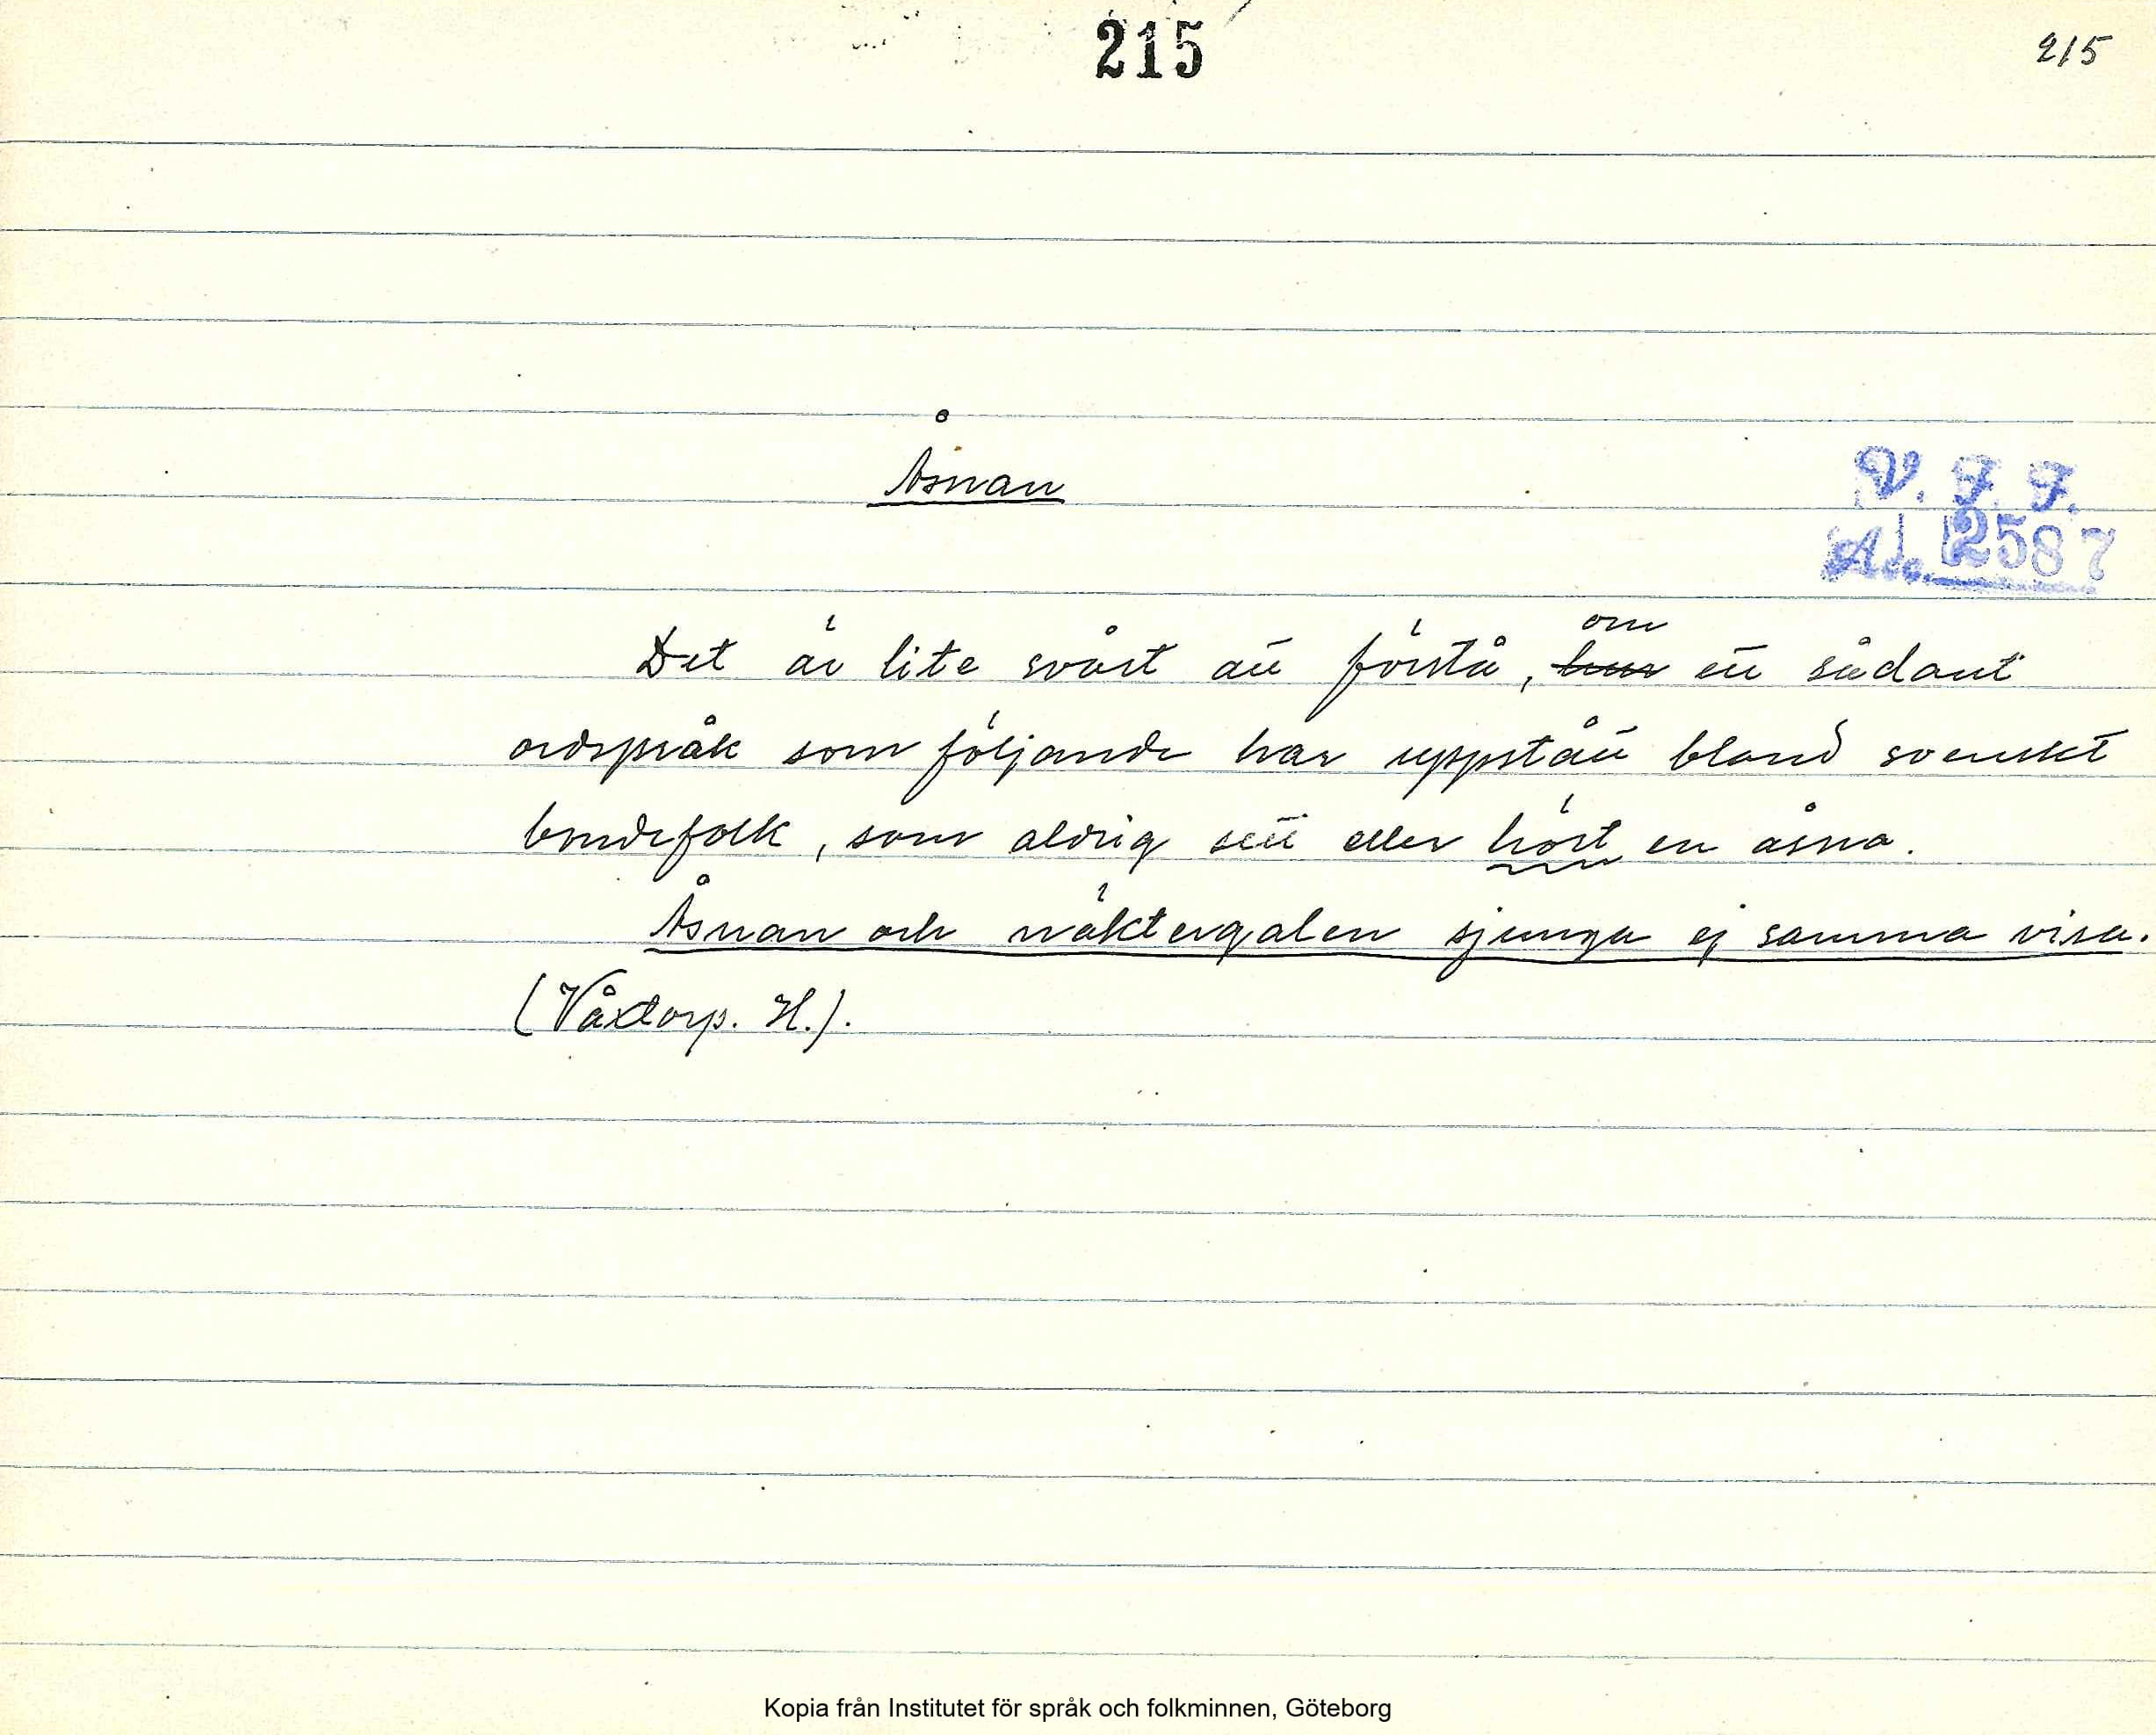 215
215
Åsnan
V. F. F.
Acc. 2587
om
Det är lite svårt att förstå, hur ett sådant
ordspråk som följande har uppstått bland svenskt
bondefolk, som aldrig sett eller hört en åsna.
Åsnan och näktergalen sjunga ej samma visa.
(Våxtorp. H.).
Kopia från Institutet för språk och folkminnen, Göteborg